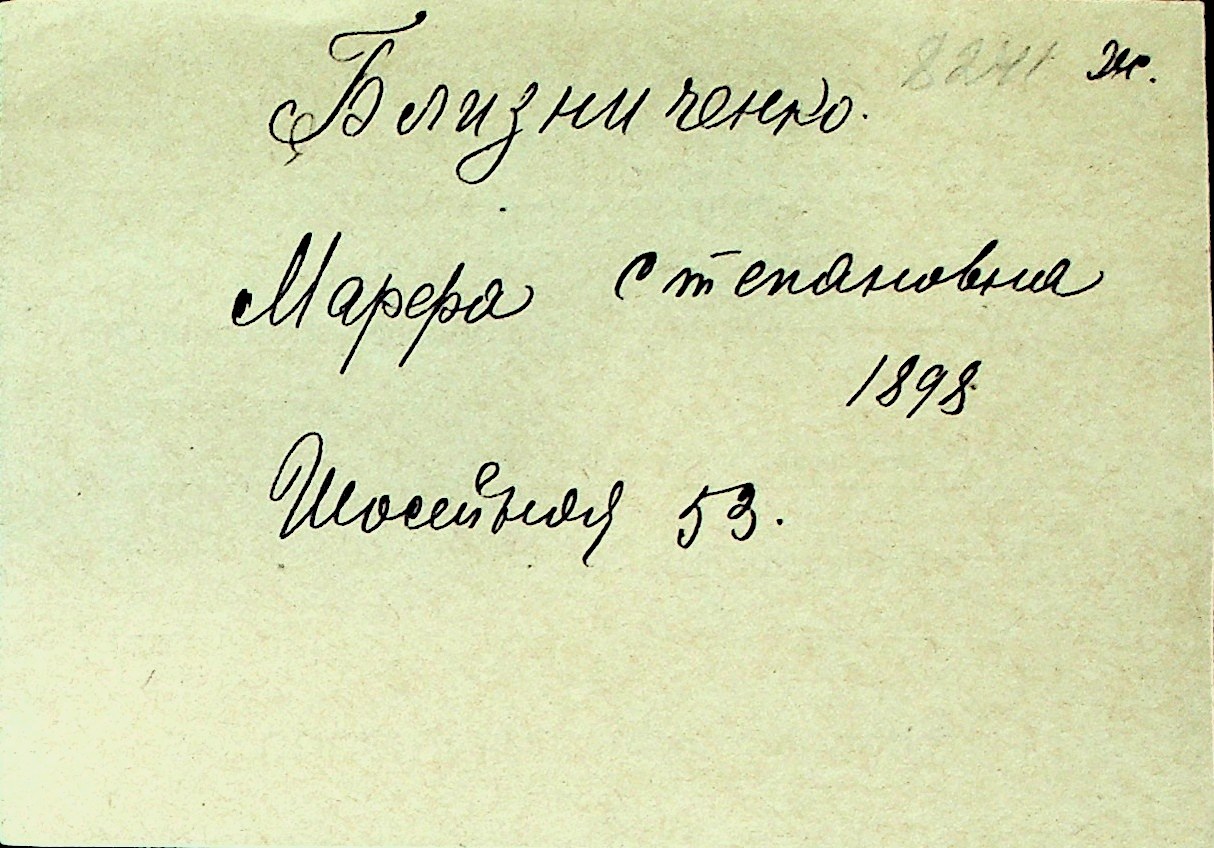 8241 ж.
Близниченко.
Марфа Степановна
1898
Шосейная 53.